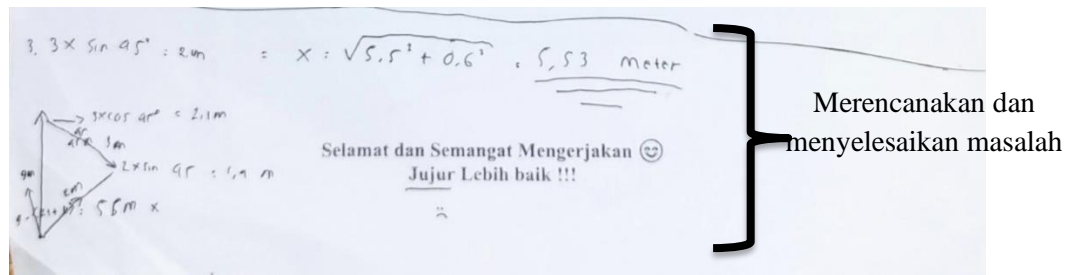 3. 3x sin 45° : 2.m : x : √5,5² + 0,6² . 5,53 meter
3xcos 45° = 2,1m
3m
2xsin 45 : 1,4 m
2m
9m
: 5,5m x
Selamat dan Semangat Mengerjakan 😊
Jujur Lebih baik !!!
Merencanakan dan
menyelesaikan masalah